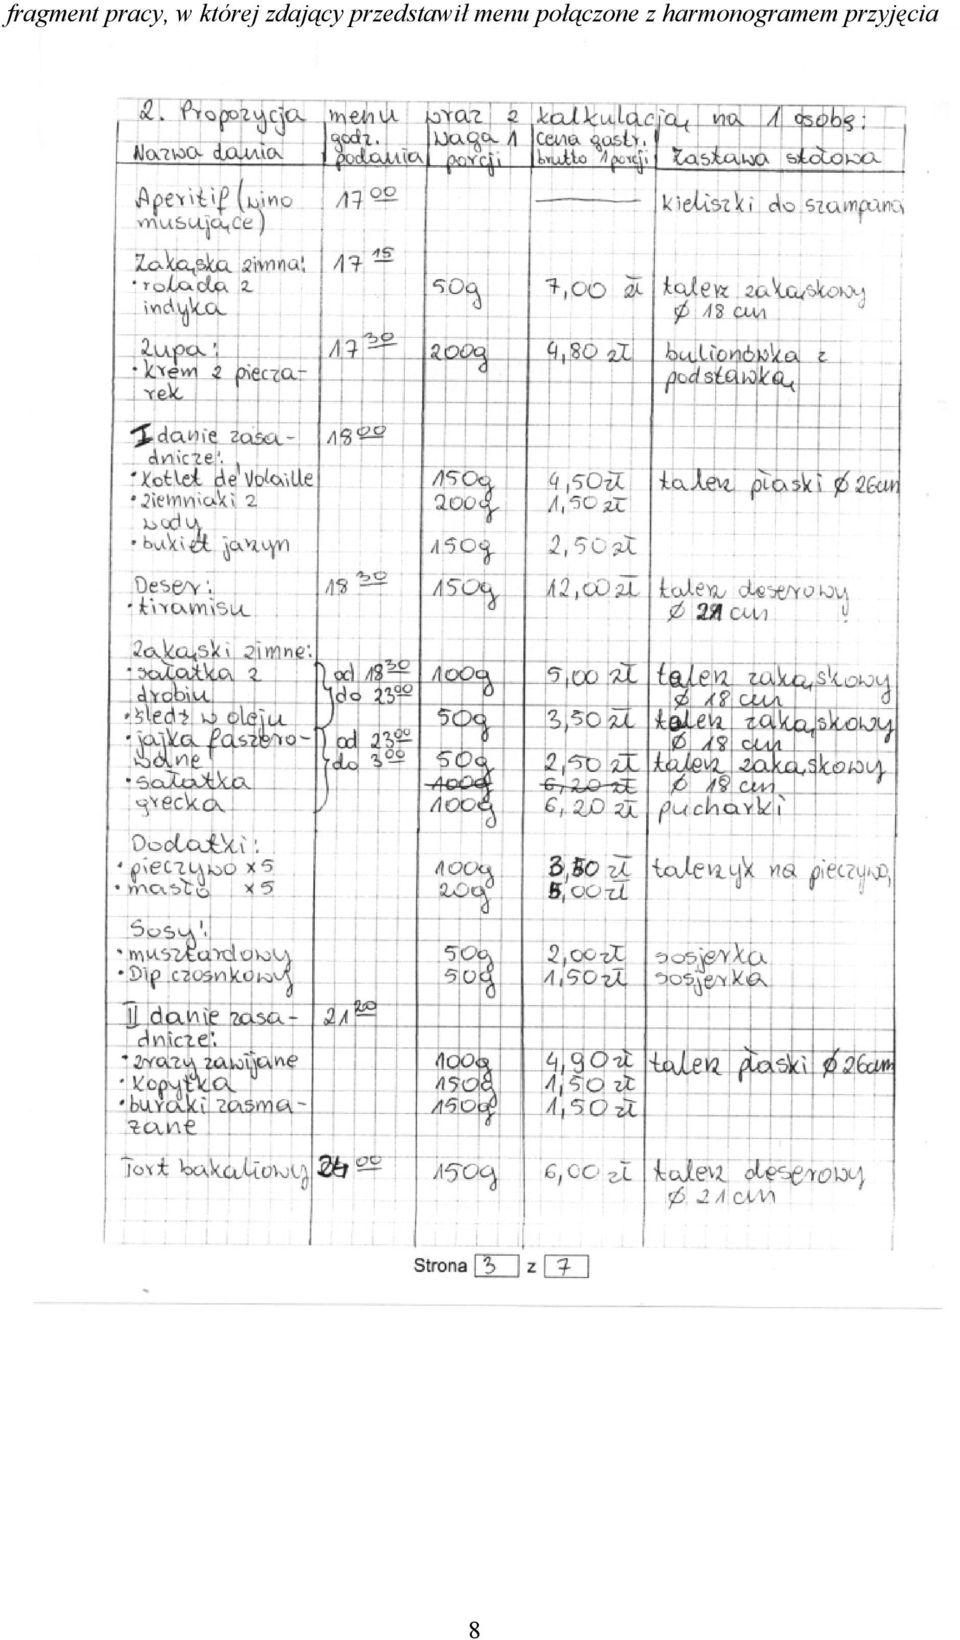 fragment pracy, w której zdający przedstawił menu połączone z harmonogramem przyjęcia
2. Propozycja menu wraz z kalkulacją na 1 osobę:
Nazwa dania | godz. podania | Waga 1 porcji | cena gastr. brutto 1 porcji | Zastawa stołowa
Aperitif (wino 17 00 ——— kieliszki do szampana
musujące)
Zakąska zimna: 17 15
• rolada z 50g 7,00 zł talerz zakąskowy
indyka ϕ 18 cm
Zupa: 17 30 200g 4,80 zł bulionówka z
• krem z pieczarek podstawką
I danie zasa- 18 00
dnicze:
• kotlet de Volaille 150g 4,50 zł talerz płaski ϕ 26cm
• ziemniaki z 200g 1,50 zł
wody
• bukiet jarzyn 150g 2,50 zł
Deser: 18 30 150g 12,00 zł talerz deserowy
• tiramisu ϕ 21 cm
Zakąski zimne:
• sałatka z od 18 30 100g 5,00 zł talerz zakąskowy
drobiu do 23 00 ϕ 18 cm
• śledź w oleju 50g 3,50 zł talerz zakąskowy
• jajka faszero- od 23 00 ϕ 18 cm
wane do 3 00 50g 2,50 zł talerz zakąskowy
• sałatka 100g 6,20 zł ϕ 18 cm
grecka 100g 6,20 zł pucharki
Dodatki:
• pieczywo x5 100g 3,50 zł talerzyk na pieczywo,
• masło x5 20g 5,00 zł
Sosy:
• musztardowy 50g 2,00 zł sosjerka
• Dip czosnkowy 50g 1,50 zł sosjerka
II danie zasa- 21 20
dnicze:
• zrazy zawijane 100g 4,90 zł talerz płaski ϕ 26cm
• kopytka 150g 1,50 zł
• buraki zasma- 150g 1,50 zł
żane
Tort bakaliowy 24 00 150g 6,00 zł talerz deserowy
ϕ 21 cm
Strona 3 z 7
8